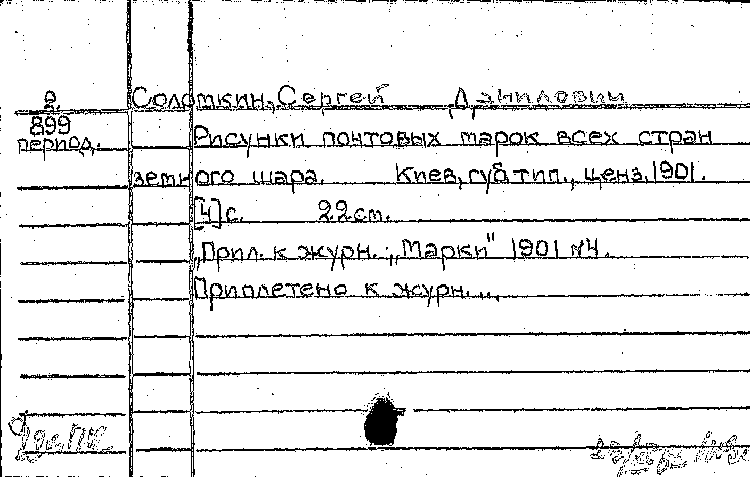 2
899
период.
Солоткин, Сергей Данилович
Рисунки почтовых марок всех стран
земного шара. Киев, губ. тип., ценз. 1901.
[4] с. 22 см.
„Прил. к журн.: „Марки" 1901 №4.
Приплетено к журн...